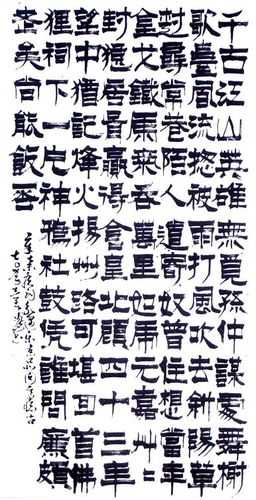 千古江山英雄無覓孫仲謀處舞榭
歌臺風流總被雨打風吹去斜陽草
樹尋常巷陌人道寄奴曾住想當年
金戈鐵馬氣吞萬里如虎元嘉艸艸
封狼居胥贏得倉皇北顧四十三年
望中猶記烽火揚州路可堪回首佛
狸祠下一片神鴉社鼓凭誰問廉頗
老矣尚能飯否